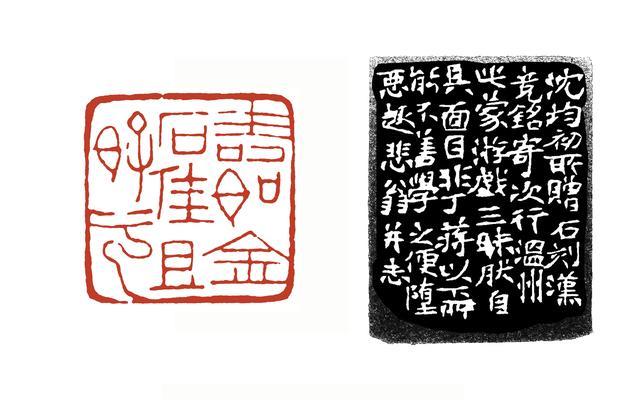 壽如金
石佳且
好兮
沈均初所贈石刻漢
竟銘寄次行溫州
此家游戲三昧肰自
具面目非丁蔣以下所
能不善學之便墮
惡趣悲翁并志